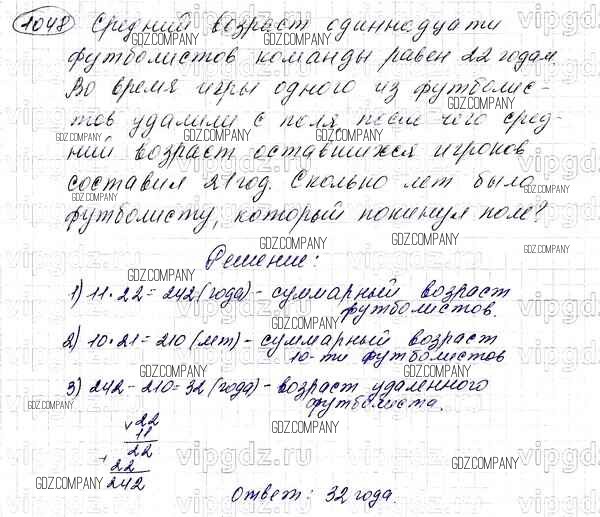 1048 Средний возраст одиннадцати
футболистов команды равен 22 годам.
Во время игры одного из футболис-
тов удалили с поля после чего сред-
ний возраст оставшихся игроков
составил 21 год. Сколько лет было
футболисту, который покинул поле?
Решение:
1) 11·22=242 (года) - суммарный возраст
футболистов.
2) 10·21=210 (лет) - суммарный возраст
10-ти футболистов
3) 242-210=32 (года) - возраст удаленного
футболиста.
×22
11
+22
22
242
Ответ: 32 года.
GDZ.COMPANY
vipgdz.ru